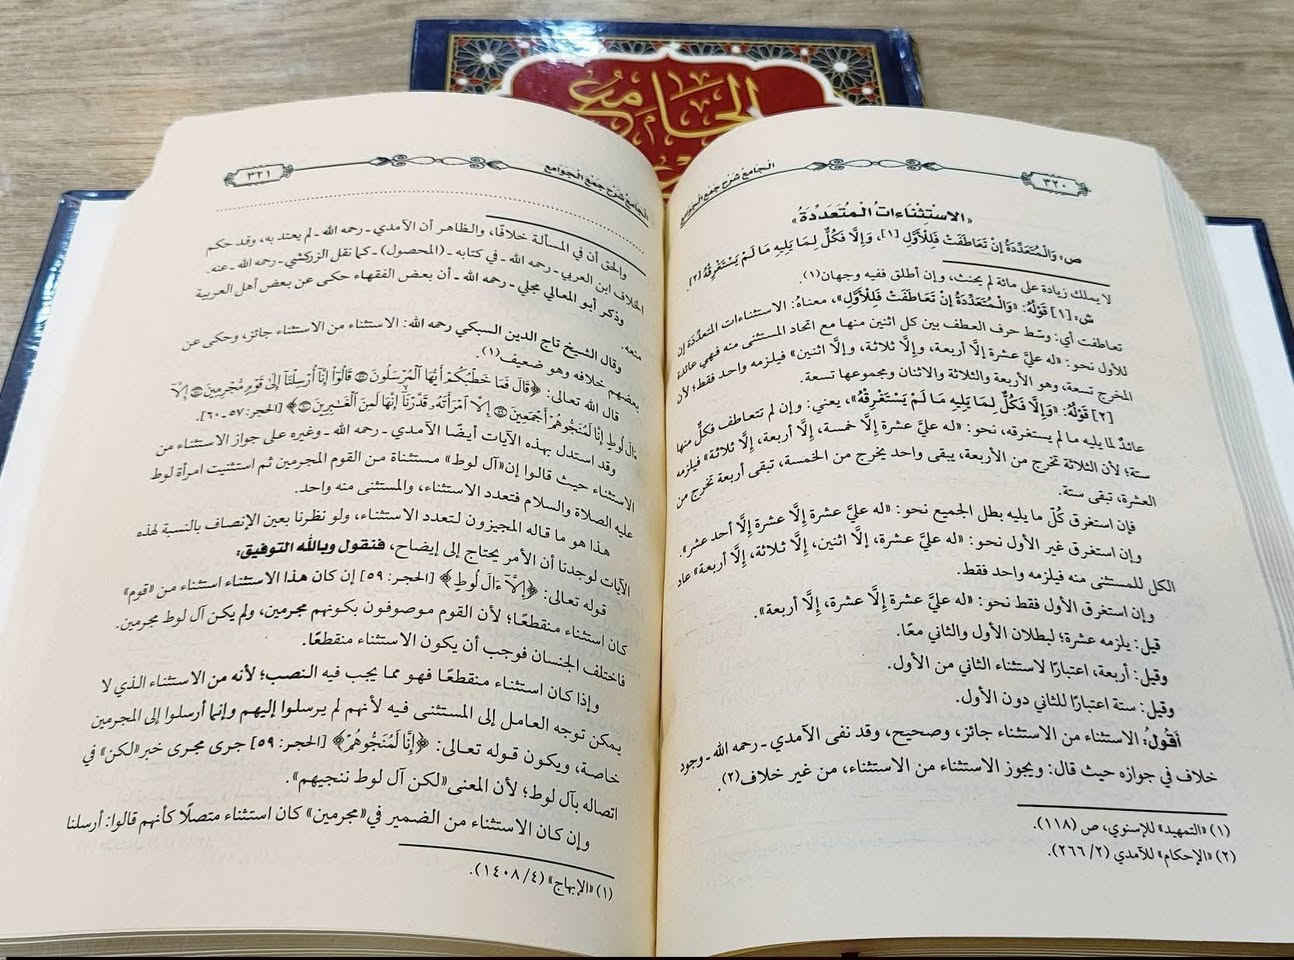 الجامع
٣٢٠
الجامع شرح جمع الجوامع
«الاسْتِثْنَاءَاتُ الْمُتَعَدِّدَةُ»
ص» وَالْمُتَعَدِّدَةُ إِنْ تَعَاطَفَتْ فَلِلْأَوَّلِ [١]، وَإِلَّا فَكُلٌّ لِمَا يَلِيهِ مَا لَمْ يَسْتَغْرِقْهُ [٢].
لا يملك زيادة على مائة لم يحنث، وإن أطلق ففيه وجهان(١).
ش» [١] قَوْلُهُ: «وَالْمُتَعَدِّدَةُ إِنْ تَعَاطَفَتْ فَلِلْأَوَّلِ»، معناهُ: الاستثناءات المتعدِّدة إن
تعاطفت أي: وسّط حرف العطف بين كل اثنين منها مع اتحاد المستثنى منه فهي عائدة
للأول نحو: «له عليَّ عشرة إلَّا أربعة، وإلَّا ثلاثة، وإلَّا اثنين» فيلزمه واحد فقط؛ لأن
المخرج تسعة، وهو الأربعة والثلاثة والاثنان ومجموعها تسعة.
[٢] قَوْلُهُ: «وَإِلَّا فَكُلٌّ لِمَا يَلِيهِ مَا لَمْ يَسْتَغْرِقْهُ»، يعني: وإن لم تتعاطف فكلٌّ منها
عائدٌ لما يليه ما لم يستغرقه، نحو: «له عليَّ عشرة إلَّا خمسة، إلَّا أربعة، إلَّا ثلاثة» فيلزمه
ستة؛ لأن الثلاثة تخرج من الأربعة، يبقى واحد يخرج من الخمسة، تبقى أربعة تخرج من
العشرة، تبقى ستة.
فإن استغرق كُلّ ما يليه بطل الجميع نحو: «له عليَّ عشرة إلَّا عشرة إلَّا أحد عشر».
وإن استغرق غير الأول نحو: «له عليَّ عشرة، إلَّا اثنين، إلَّا ثلاثة، إلَّا أربعة» عاد
الكل للمستثنى منه فيلزمه واحد فقط.
وإن استغرق الأول فقط نحو: «له عليَّ عشرة إلَّا عشرة، إلَّا أربعة».
قيل: يلزمه عشرة؛ لبطلان الأول والثاني معًا.
وقيل: أربعة، اعتبارًا لاستثناء الثاني من الأول.
وقيل: ستة اعتبارًا للثاني دون الأول.
أقولُ: الاستثناء من الاستثناء جائز، وصحيح، وقد نفى الآمدي ـ رحمه الله ـ وجود
خلاف في جوازه حيث قال: ويجوز الاستثناء من الاستثناء، من غير خلاف(٢).
(١) «التمهيد» للإسنوي، ص (١١٨).
(٢) «الإحكام» للآمدي (٢٦٦/٢).
الجامع شرح جمع الجوامع
٣٢١
والحق أن في المسألة خلافًا، والظاهر أن الآمدي ـ رحمه الله ـ لم يعتد به، وقد حكم
الخلاف ابن العربي ـ رحمه الله ـ في كتابه ـ (المحصول) ـ كما نقل الزركشي ـ رحمه الله ـ عنه.
وذكر أبو المعالي مجلي ـ رحمه الله ـ أن بعض الفقهاء حكى عن بعض أهل العربية
منعه.
وقال الشيخ تاج الدين السبكي رحمه الله: الاستثناء من الاستثناء جائز، وحكى عن
بعضهم خلافه وهو ضعيف(١).
قال الله تعالى: ﴿قَالَ فَمَا خَطْبُكُمْ أَيُّهَا ٱلْمُرْسَلُونَ ۝ قَالُوٓا۟ إِنَّآ أُرْسِلْنَآ إِلَىٰ قَوْمٍ مُّجْرِمِينَ ۝ إِلَّآ
ءَالَ لُوطٍ إِنَّا لَمُنَجُّوهُمْ أَجْمَعِينَ ۝ إِلَّا ٱمْرَأَتَهُۥ قَدَّرْنَآ إِنَّهَا لَمِنَ ٱلْغَـٰبِرِينَ ۝﴾ [الحجر: ٥٧-٦٠].
وقد استدل بهذه الآيات أيضًا الآمدي ـ رحمه الله ـ وغيره على جواز الاستثناء من
الاستثناء حيث قالوا إن «آل لوط» مستثناة من القوم المجرمين ثم استثنيت امرأة لوط
عليه الصلاة والسلام فتعدد الاستثناء، والمستثنى منه واحد.
هذا هو ما قاله المجيزون لتعدد الاستثناء، ولو نظرنا بعين الإنصاف بالنسبة لهذه
الآيات لوجدنا أن الأمر يحتاج إلى إيضاح، فنقول وبالله التوفيق:
قوله تعالى: ﴿إِلَّآ ءَالَ لُوطٍ﴾ [الحجر: ٥٩] إن كان هذا الاستثناء استثناء من «قوم»
كان استثناء منقطعًا؛ لأن القوم موصوفون بكونهم مجرمين، ولم يكن آل لوط مجرمين.
فاختلف الجنسان فوجب أن يكون الاستثناء منقطعًا.
وإذا كان استثناء منقطعًا فهو مما يجب فيه النصب؛ لأنه من الاستثناء الذي لا
يمكن توجه العامل إلى المستثنى فيه لأنهم لم يرسلوا إليهم وإنما أرسلوا إلى المجرمين
خاصة، ويكون قوله تعالى: ﴿إِنَّا لَمُنَجُّوهُمْ﴾ [الحجر: ٥٩] جرى مجرى خبر «لكن» في
اتصاله بآل لوط؛ لأن المعنى «لكن آل لوط ننجيهم».
وإن كان الاستثناء من الضمير في «مجرمين» كان استثناء متصلًا كأنهم قالوا: أرسلنا
(١) «الإبهاج» (١٤٠٨/٤).